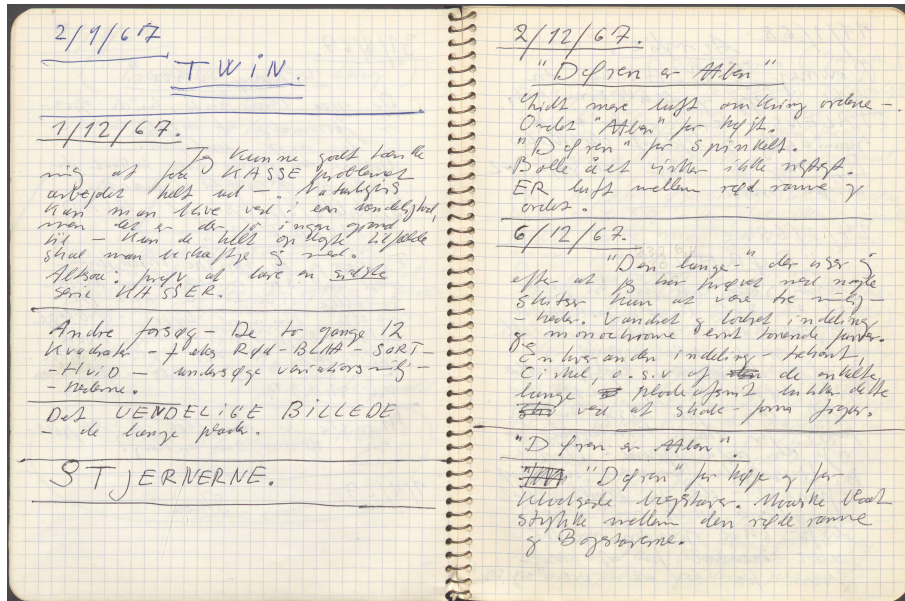 2/9/67
TWIN.
1/12/67.
Jeg kunne godt tænke
mig at få KASSE problemet
arbejdet helt ud - Naturligvis
kan man blive ved i een uendelighed,
men det er der jo ingen grund
til - Kun de helt oplagte tilfælde
skal man beskæftige sig med.
Altsaa: prøv at lave en sidste
serie KASSER.
Andre forsøg - De to gange 12
Kvadrater - f eks RØD - BLAA - SORT -
- HVID - undersøge variationsmulig-
- hederne.
Det UENDELIGE BILLEDE
- de lange plader.
STJERNERNE.
2/12/67.
"Døren er Åben"
Lidt mere luft omkring ordene -.
Ordet "Åben" for højt.
"Døren" for spinkelt.
Bolle å'et virker ikke rigtigt.
ER luft mellem rød ramme og
ordet.
6/12/67.
"Den lange -" der viser sig
efter at jeg har prøvet med nogle
skitser kun at være tre mulig-
- heder. Vandret og lodret indeling
og monochrome ent tonende farver.
Enhver anden indeling - trekant,
Cirkel, o.s.v af de enkelte
lange plade afsnit lukker dette
ved at skabe - form figur.
"Døren er Åben".
"Døren" for høje og for
klodsede bogstaver. Maaske blaat
stykke mellem den røde ramme
og Bogstaverne.